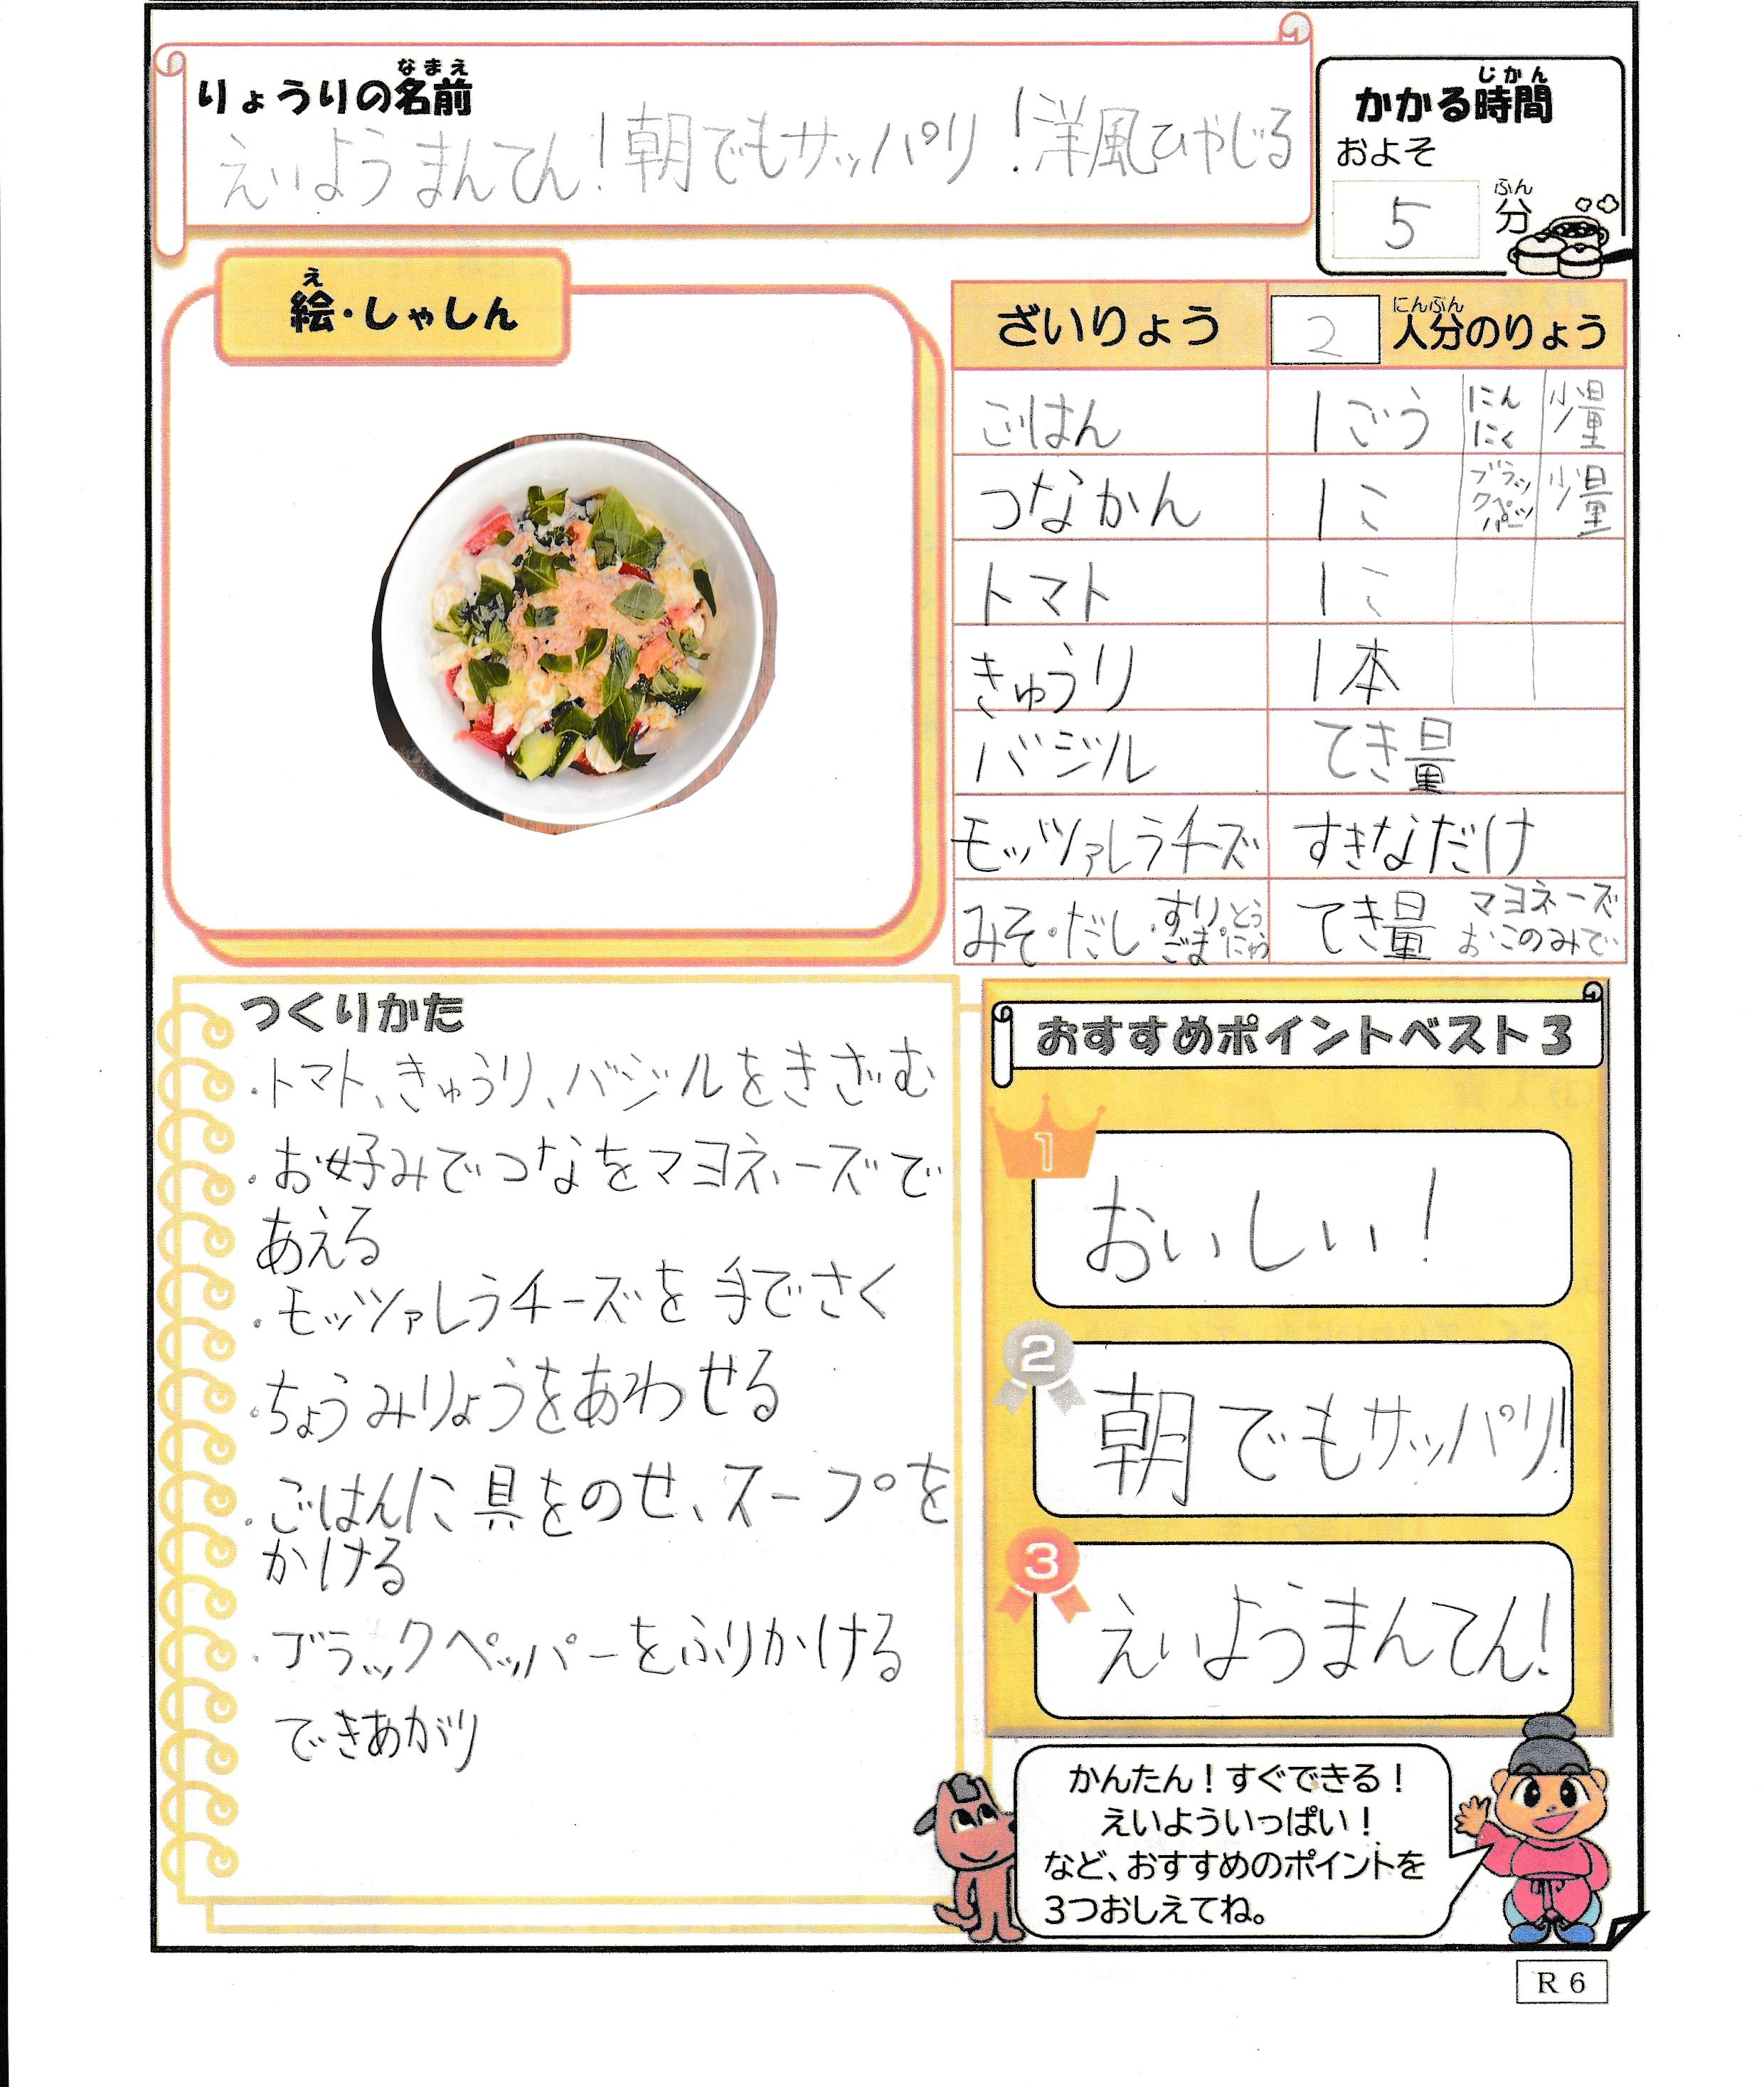 りょうりの名前
なまえ
えいようまんてん！朝でもサッパリ！洋風ひやじる
かかる時間
じかん
およそ
5分
ふん
絵・しゃしん
え
ざいりょう 2 人分のりょう
にんぶん
ごはん 1ごう にんにく 少量
つなかん 1こ ブラックペッパー 少量
トマト 1こ
きゅうり 1本
バジル てき量
モッツァレラチーズ すきなだけ
みそ・だし・すりごま・とうにゅう てき量 マヨネーズおこのみで
つくりかた
・トマト、きゅうり、バジルをきざむ
・お好みでつなをマヨネーズで
あえる
・モッツァレラチーズを手でさく
・ちょうみりょうをあわせる
・ごはんに具をのせ、スープを
かける
・ブラックペッパーをふりかける
できあがり
おすすめポイントベスト3
1
おいしい！
2
朝でもサッパリ！
3
えいようまんてん！
かんたん！すぐできる！
えいよういっぱい！
など、おすすめのポイントを
3つおしえてね。
R6